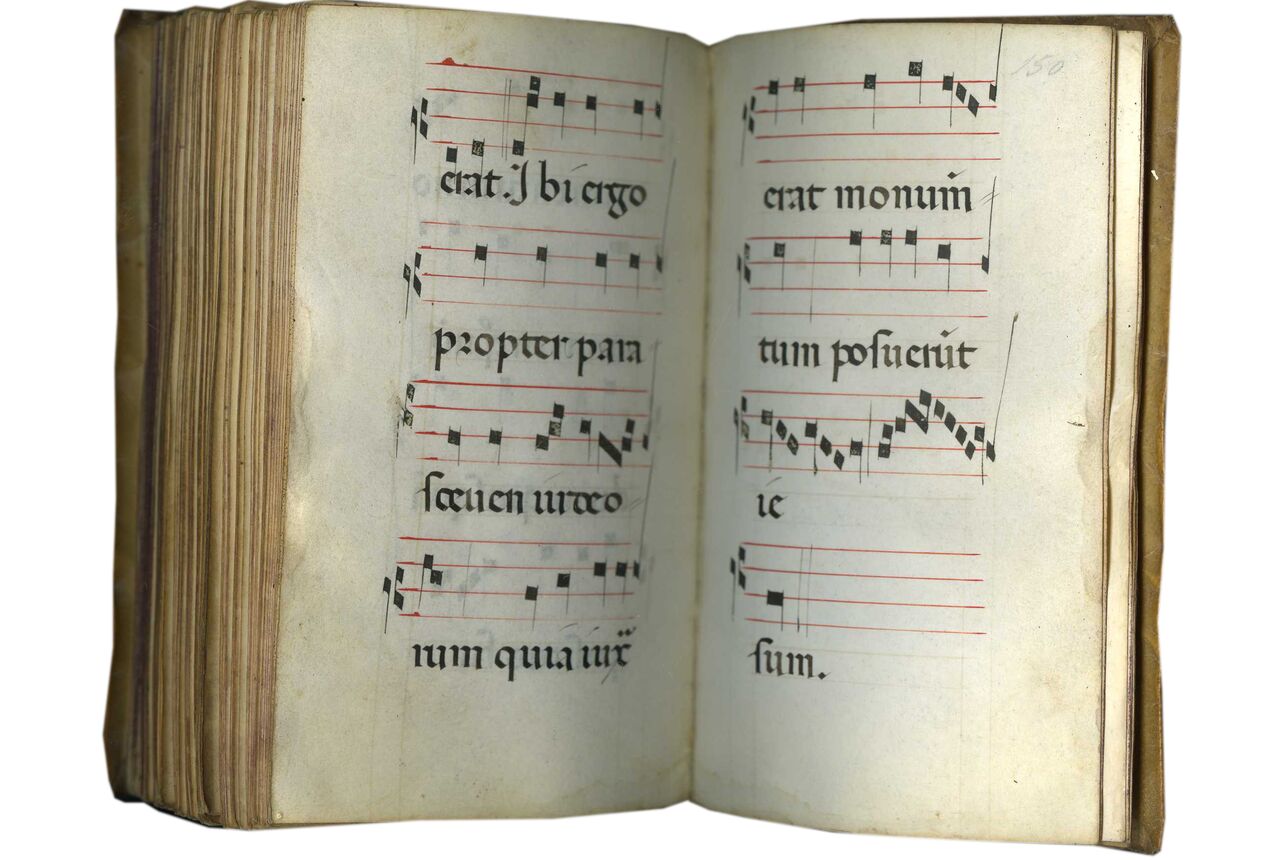 erat. Ibi ergo
propter para
sceuen iudeo
rum quia iuxͣ
150
erat monum̄
tum posuerūt
ie
sum.